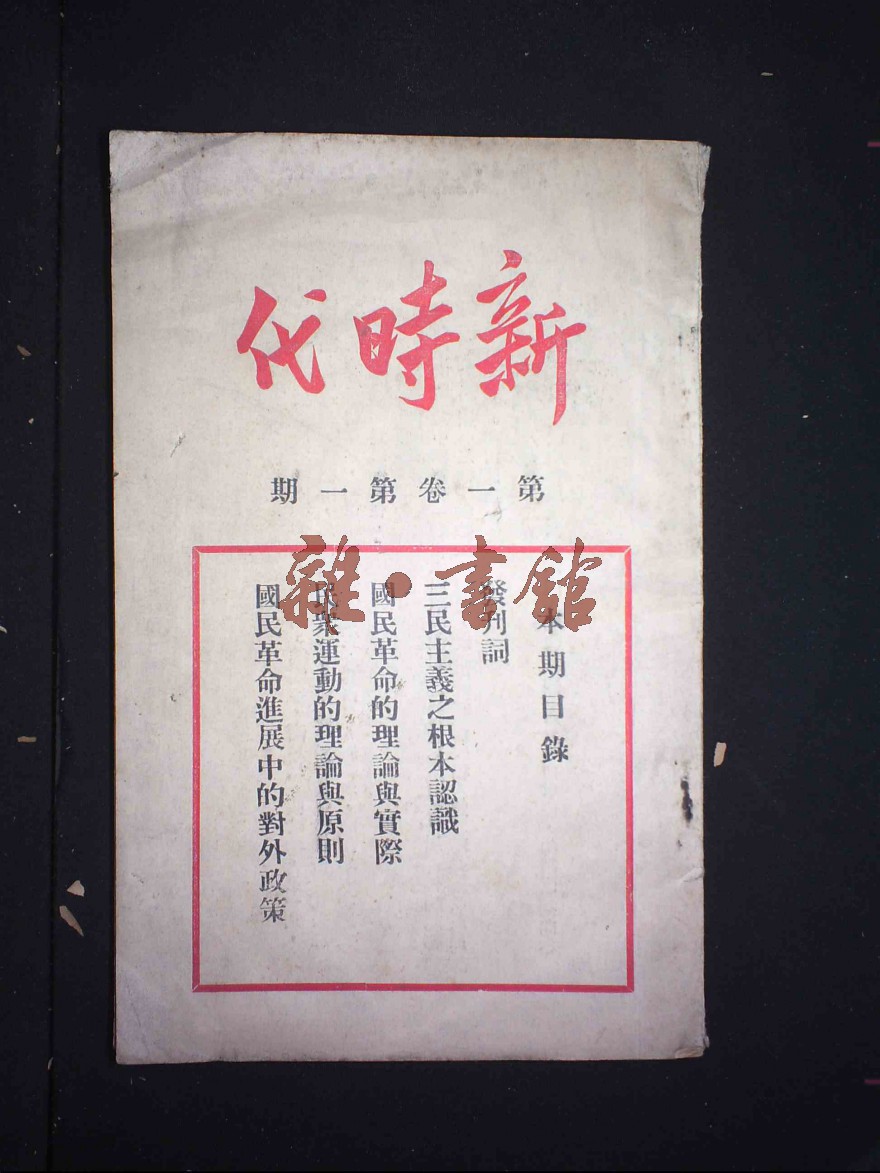 新時代
第一卷第一期
雜·書館
本期目錄
發刊詞
三民主義之根本認識
國民革命的理論與實際
民衆運動的理論與原則
國民革命進展中的對外政策